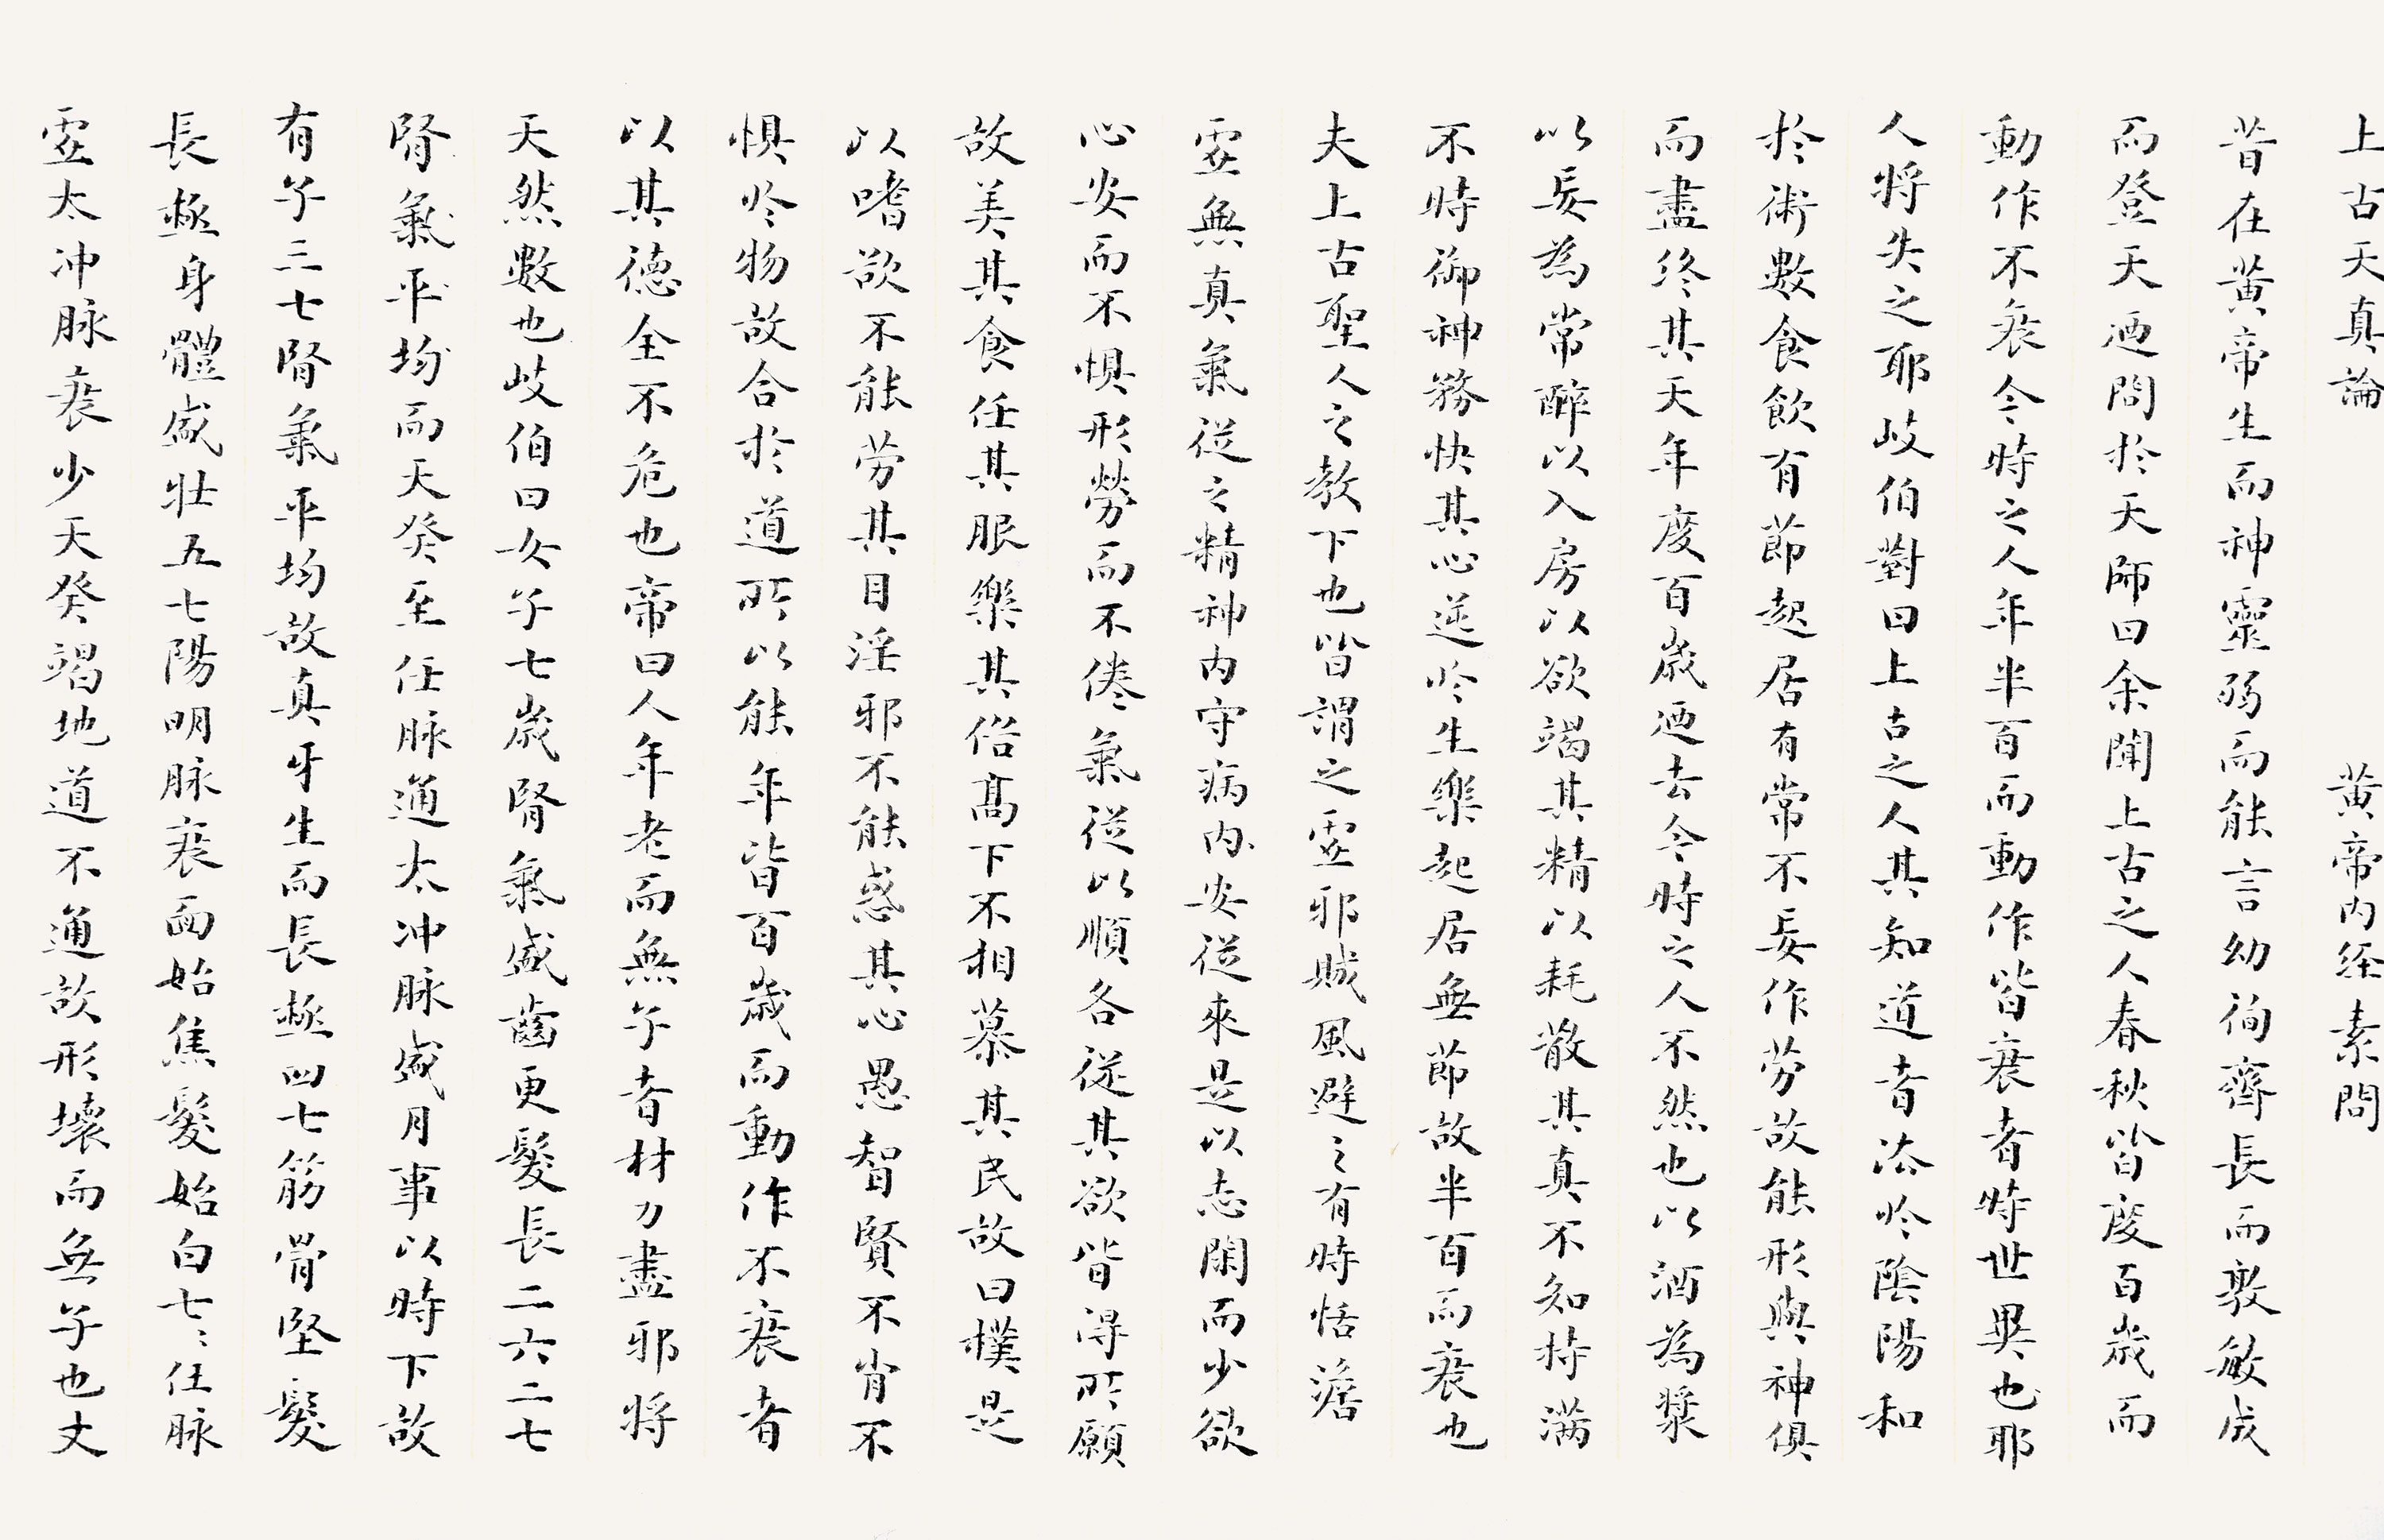 上古天真論 黃帝內経素問
昔在黃帝生而神靈弱而能言幼徇齊長而敦敏成
而登天迺問於天師曰余聞上古之人春秋皆度百歲而
動作不衰今時之人年半百而動作皆衰者時世異也耶
人将失之耶岐伯對曰上古之人其知道者法於陰陽和
於術數食飲有節起居有常不妄作劳故能形與神俱
而盡终其天年度百歲迺去今時之人不然也以酒為漿
以妄為常醉以入房以欲竭其精以耗散其真不知持满
不時御神務快其心逆於生樂起居無節故半百而衰也
夫上古聖人之教下也皆謂之虛邪賊風避之有時恬澹
虛無真氣從之精神內守病內安從來是以志閑而少欲
心安而不惧形勞而不倦氣從以順各從其欲皆得所願
故美其食任其服樂其俗髙下不相慕其民故曰樸是
以嗜欲不能劳其目淫邪不能惑其心愚智賢不肖不
惧於物故合於道所以能年皆百歲而動作不衰者
以其德全不危也帝曰人年老而無子者材力盡邪将
天然數也岐伯曰女子七歲腎氣盛齒更髮長二六二七
腎氣平均而天癸至任脉通太冲脉盛月事以時下故
有子三七腎氣平均故真牙生而長極四七筋骨堅髮
長極身體盛壯五七陽明脉衰面始焦髮始白七〻任脉
虛太冲脉衰少天癸竭地道不通故形壞而無子也丈